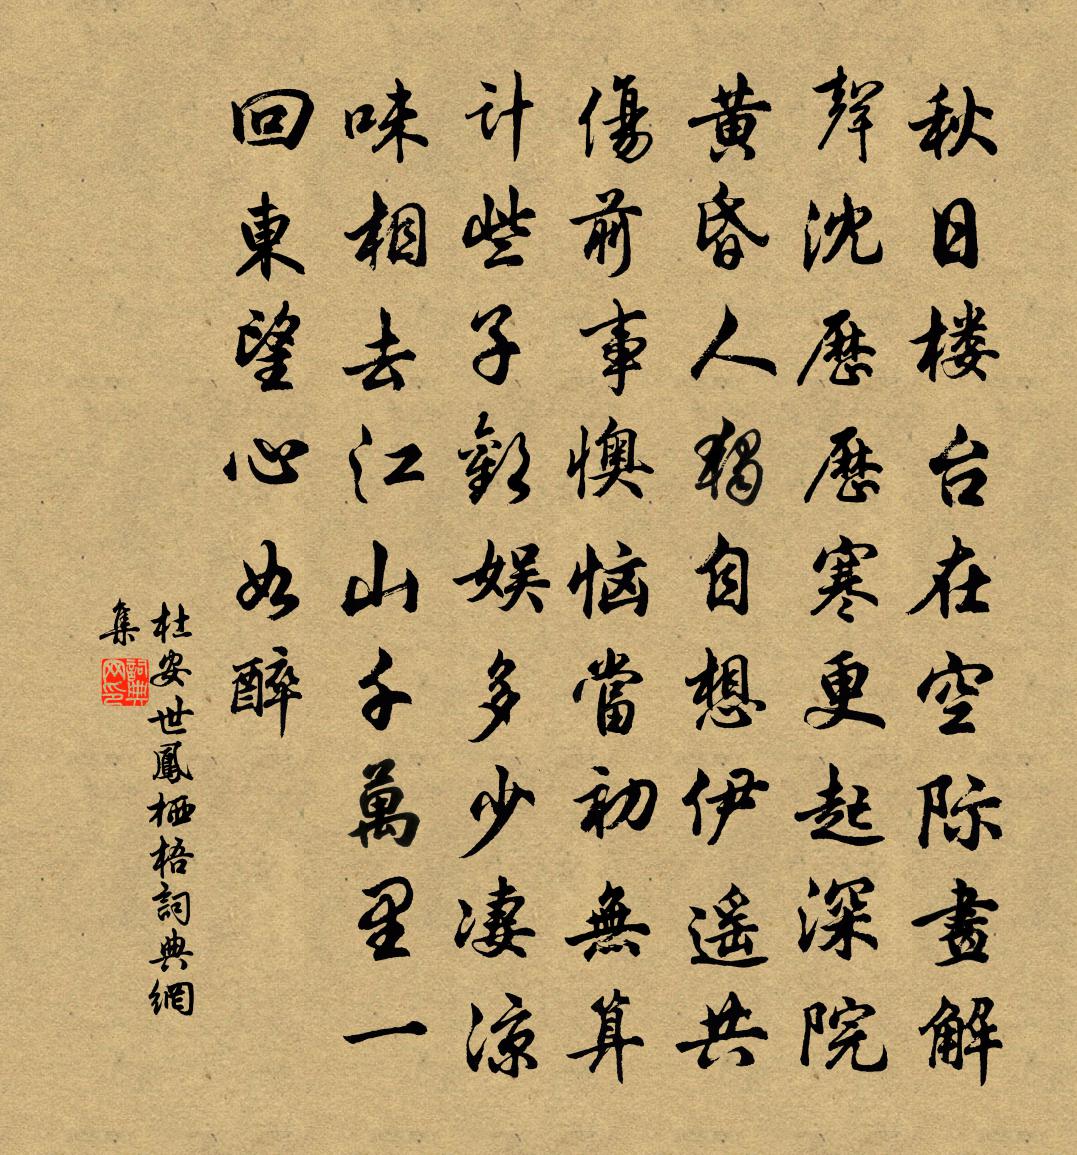 秋日楼台在空际畫解
聲沈歷歷寒更起深院
黄昏人獨自想伊遥共
傷前事懊恼當初無算
计些子歡娱多少凄涼
味相去江山千萬里一
回東望心如醉
杜安世鳳栖梧詞典網
集
詞典
网印